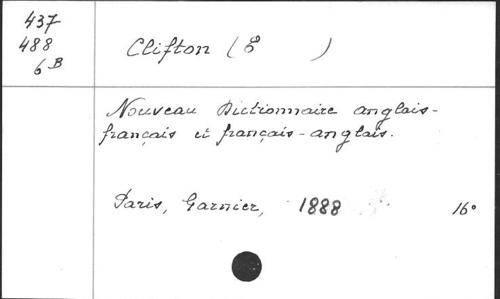 437
488
6B
Clifton (E )
Nouveau Dictionnaire anglais-
français et français-anglais.
Paris, Garnier, 1888 16°